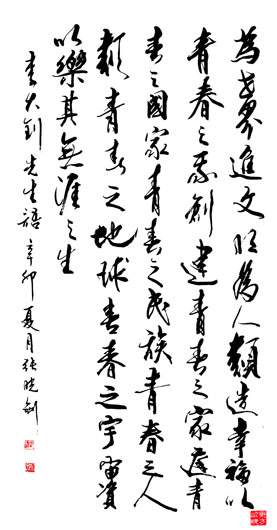 為世界進文明為人類造幸福以
青春之我創建青春之家庭青
春之國家青春之民族青春之人
類青春之地球青春之宇宙資
以樂其無涯之生
李大釗先生語辛卯夏月張曉劍